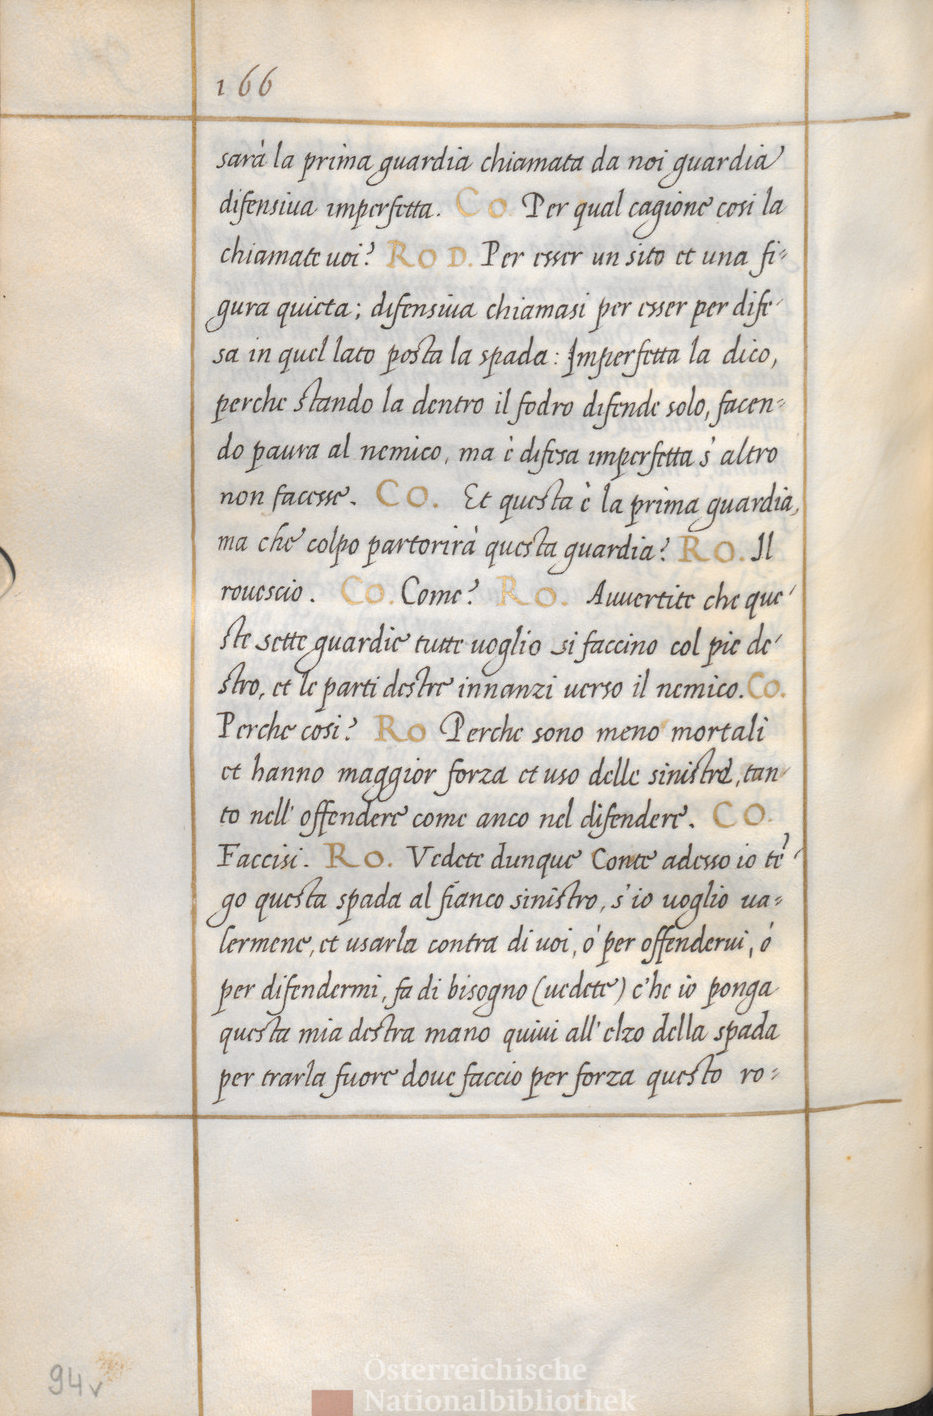 166
sarà la prima guardia chiamata da noi guardia
difensiua imperfetta. CO Per qual cagione cosi la
chiamate uoi? ROD. Per esser un sito et una fi-
gura quieta; difensiua chiamasi per esser per dife-
sa in quel lato posta la spada: Imperfetta la dico,
perche stando la dentro il fodro difende solo, facen-
do paura al nemico, ma è difesa imperfetta s' altro
non facesse. CO. Et questa è la prima guardia,
ma che colpo partorirà questa guardia? RO. Il
rouescio. CO. Come? RO. Auuertite che que-
ste sette guardie tutte uoglio si faccino col pie de-
stro, et le parti destre innanzi uerso il nemico. CO.
Perche cosi? RO Perche sono meno mortali
et hanno maggior forza et uso delle sinistre, tan-
to nell' offendere come anco nel difendere. CO.
Faccisi. RO. Vedete dunque Conte adesso io tē-
go questa spada al fianco sinistro, s' io uoglio ua-
lermene, et usarla contra di uoi, ó per offenderui, ó
per difendermi, fa di bisogno (uedete) c'he io ponga
questa mia destra mano quiui all' elzo della spada
per trarla fuore doue faccio per forza questo ro-
94v
Österreichische
Nationalbibliothek